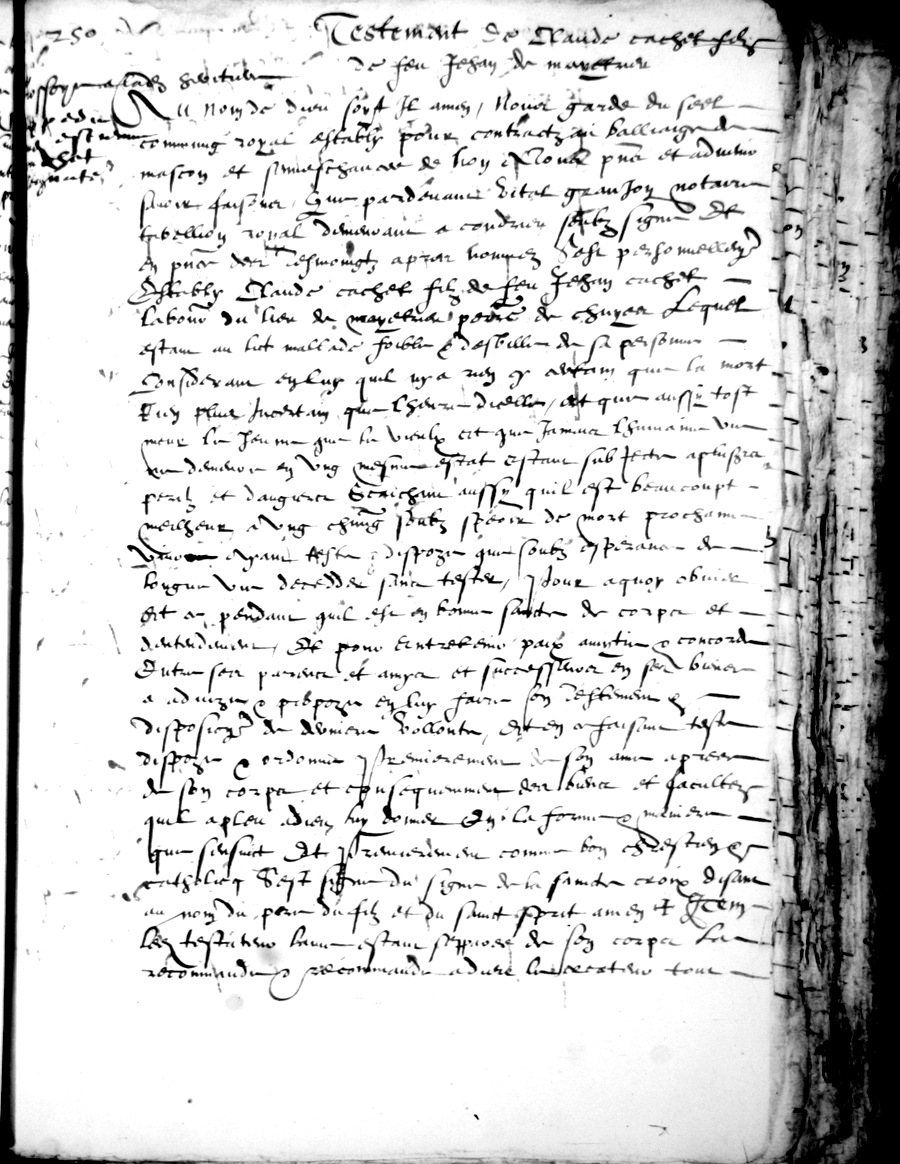 250
Testement de Claude cachet filz
de feu Jehan de mayetrieu
Au Nom de dieu soyt Il amen, Nous garde du seel
commung royal estably pour contractz au balliaige de
mascon et seneschaucee de lion A Tous pns et advenir
savoir faisons, Que pardevant Vital granjon notaire
tabellion royal demeurant a condrieu soubz signe Et
en pnce des Tesmoingtz apres nommez Sest personnellemt
Estably Claude cachet filz de feu Jehan cachet
laboure du lieu de mayetrieu perre de chuyes Lequel
estant au lict mallade foible & desbille de sa personne
Considerant en luy quil ny a rien si certain que la mort
Rien plus Incertain que lheure dicelle, et que aussy tost
meur le Jeune que le vieulx et que Jamais lhumaine vie
ne demeure en ung mesme estat estant subjecte a plusrs
perilz et dangiers Scaichant aussy quil est beaucoupt
meilheur a ung chung soubz speoir de mort prochaine
vivre ayant teste & dispoze que soubz esperance de
longue vie decedder sans tester, Pour a quoy obvier
Et ce pendant quil est en bonne sancte de corps et
dentendement, Et pour Entretenir paix amytie & concorde
Entre ses parens et amys et successeurs en ses biens
a advize & propoze en luy faire son Testement &
disposicon de derniere vollonte, Et en ce faisant teste
dispoze & ordonne Premierement de son ame apres
de son corps et consequemment des biens et facultez
quil a pleu a dieu luy donner En la forme & maniere
que sensuict Et Premierement comme bon chrestien &
catholicq Sest signe du signe de la saincte croix disant
au nom du pere du filz et du sainct esprit amen Et Item
led testateur lame estant sepparee de son corps La
recommande & recommande a dieu le createur tout